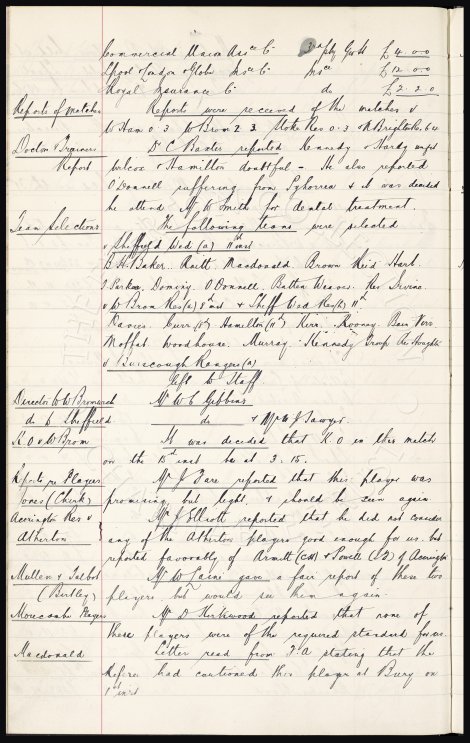 Commercial Union Assce Co £4.0.0
Lpool London & Globe Insce Co Insce £12.0.0
Royal Insurance Co do £2.2.0
Reports of matches Reports were received of the matches v
W Ham 0.3 W Brom 2.3 Stoke Res 0.3 N Brighton Res
Doctor & Trainers Dr C Baxter reported Kennedy & Hardy unfit
Report Wilcox & Hamilton doubtful - He also reported
O'Donnell suffering from Pyhorrea & it was decided
he attend Mr W Smith for dental treatment.
Team Selections The following teams were selected
v Sheffield Wed (a) 11th inst
B.H. Baker. Raitt. Macdonald. Brown Reid Hart.
Parker. Dominy. O'Donnell. Batten Weaver. Res Irvine.
v W Brom Res (a) 8th inst & Sheff Wed Res (h) 11th
Davies. Curr (8th) Hamilton (11th) Kerr. Rooney. Bain Virr.
Moffat. Woodhouse. Murray. Kennedy Troup Res Houghton
v Burscough Rangers (a)
left to Staff
Director to W Bromwich Mr W C Gibbins
do to Sheffield. do & Mr W J Sawyer.
K.O v W Brom It was decided that K.O in this match
on the 15th inst be at 3.15.
Reports re Players Mr J Fare reported that this player was
Jones (Chirk) promising but light & should be seen again
Accrington Res v Mr J Elliott reported that he did not consider
Atherton any of the Atherton players good enough for us. but
reported favorably of Armitt (CH) & Powell of Accrington
Mullen & Talbot Mr W Caine gave a fair report of these two
(Birtley) players but would see them again.
Mr D Kirkwood reported that none of
Players these players were of the required standard for us.
Macdonald Letter read from F.A stating that the
Referee had cautioned this player at Bury on
1st inst